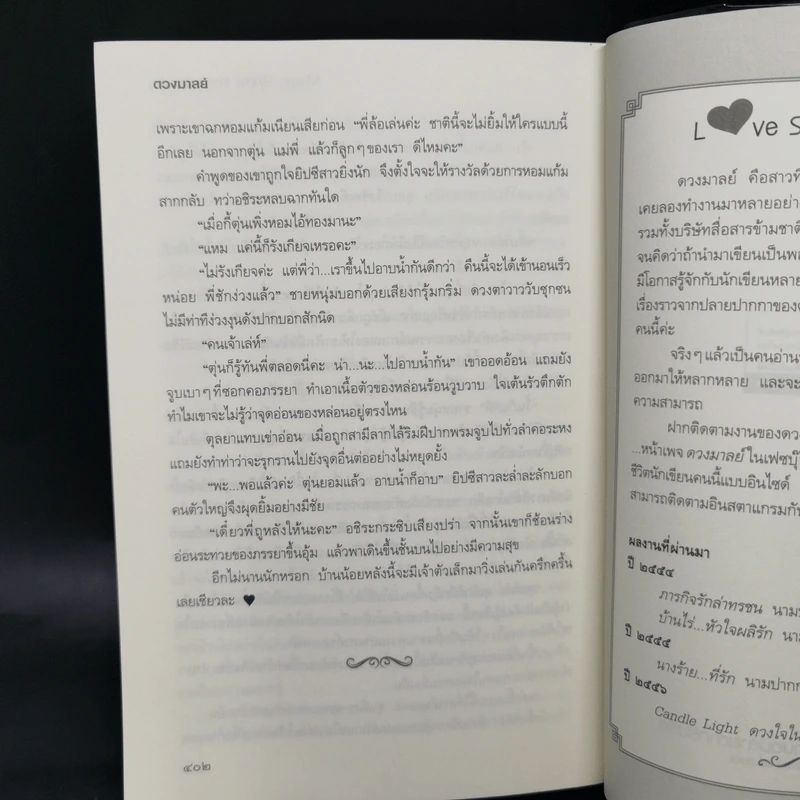 ดวงมาลย์
เพราะเขาฉกหอมแก้มเนียนเสียก่อน “พี่ล้อเล่นค่ะ ชาตินี้จะไม่ยิ้มให้ใครแบบนี้
อีกเลย นอกจากตุ่น แม่พี่ แล้วก็ลูกๆของเรา ดีไหมคะ”
คำพูดของเขาถูกใจยิปซีสาวยิ่งนัก จึงตั้งใจจะให้รางวัลด้วยการหอมแก้ม
สากกลับ ทว่าอชิระหลบฉากทันใด
“เมื่อกี้ตุ่นเพิ่งหอมไอ้ทองมานะ”
“แหม แค่นี้ก็รังเกียจเหรอคะ”
“ไม่รังเกียจค่ะ แต่พี่ว่า...เราขึ้นไปอาบน้ำกันดีกว่า คืนนี้จะได้เข้านอนเร็ว
หน่อย พี่ชักง่วงแล้ว” ชายหนุ่มบอกด้วยเสียงกรุ้มกริ่ม ดวงตาวาววับซุกซน
ไม่มีท่าทีง่วงงุนดังปากบอกสักนิด
“คนเจ้าเล่ห์”
“ตุ่นก็รู้ทันพี่ตลอดนี่คะ น่า...นะ...ไปอาบน้ำกัน” เขาออดอ้อน แถมยัง
จูบเบาๆที่ซอกคอภรรยา ทำเอาเนื้อตัวของหล่อนร้อนวูบวาบ ใจเต้นรัวตึกตัก
ทำไมเขาจะไม่รู้ว่าจุดอ่อนของหล่อนอยู่ตรงไหน
ตุลยาแทบเข่าอ่อน เมื่อถูกสามีลากไล้ริมฝีปากพรมจูบไปทั่วลำคอระหง
แถมยังทำท่าว่าจะรุกรานไปยังจุดอื่นต่ออย่างไม่หยุดยั้ง
“พะ...พอแล้วค่ะ ตุ่นยอมแล้ว อาบน้ำก็อาบ” ยิปซีสาวละล่ำละลักบอก
คนตัวใหญ่จึงผุดยิ้มอย่างมีชัย
“เดี๋ยวพี่ถูหลังให้นะคะ” อชิระกระซิบเสียงปร่า จากนั้นเขาก็ช้อนร่าง
อ่อนระทวยของภรรยาขึ้นอุ้ม แล้วพาเดินขึ้นชั้นบนไปอย่างมีความสุข
อีกไม่นานนักหรอก บ้านน้อยหลังนี้จะมีเจ้าตัวเล็กมาวิ่งเล่นกันครึกครื้น
เลยเชียวละ ♥
๔๐๒
L♥ve S
ดวงมาลย์ คือสาวที่
เคยลองทำงานมาหลายอย่าง
รวมทั้งบริษัทสื่อสารข้ามชาติ
จนคิดว่าถ้านำมาเขียนเป็น
มีโอกาสรู้จักกับนักเขียนหลาย
เรื่องราวจากปลายปากกาของ
คนนี้ค่ะ
จริงๆแล้วเป็นคนอ่าน
ออกมาให้หลากหลาย และจะ
ความสามารถ
ฝากติดตามงานของ
...หน้าเพจ ดวงมาลย์ ในเฟซบุ๊
ชีวิตนักเขียนคนนี้แบบอินไซด์
สามารถติดตามอินสตาแกรมกัน
ผลงานที่ผ่านมา
ปี ๒๕๕๔
ภารกิจรักล่าทรชน
บ้านไร่...หัวใจผลิรัก
ปี ๒๕๕๕
นางร้าย...ที่รัก นามปาก
ปี ๒๕๕๖
Candle Light ดวงใจใน